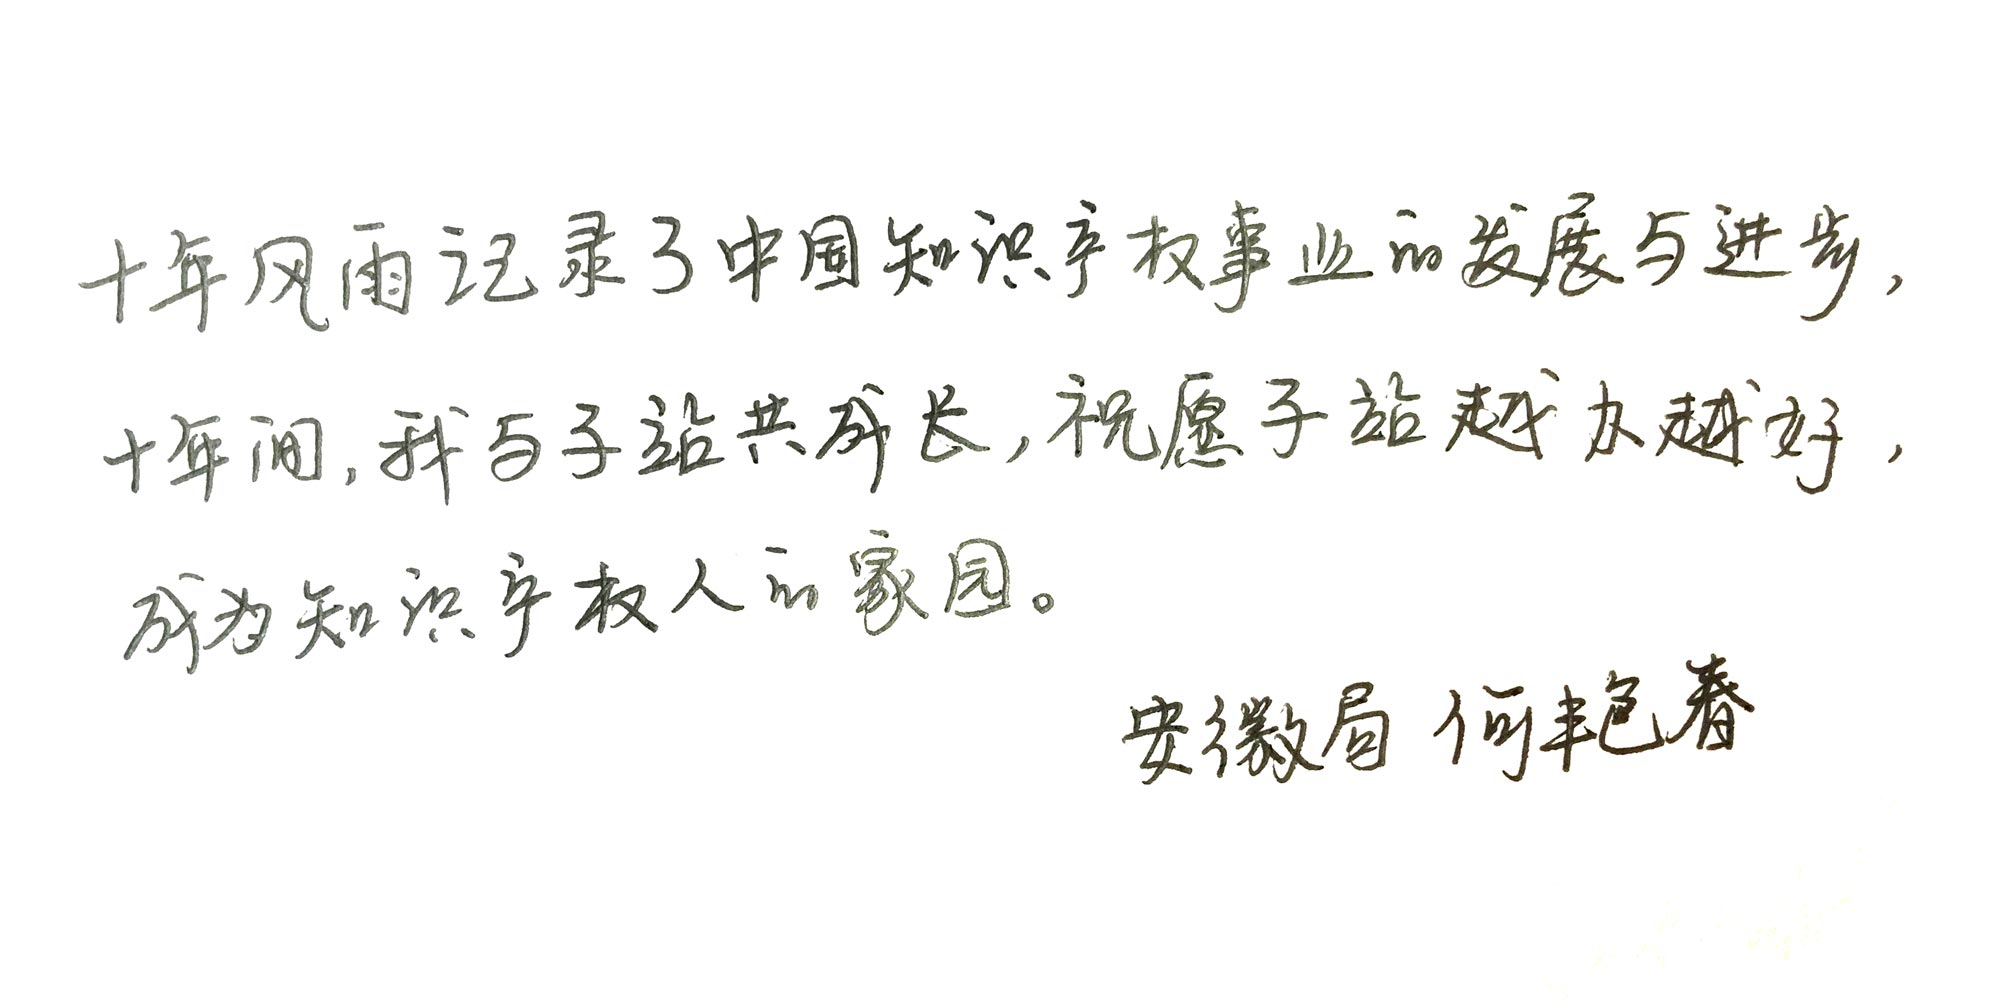 十年风雨记录了中国知识产权事业的发展与进步，
十年间，我与子站共成长，祝愿子站越办越好，
成为知识产权人的家园。
安徽局 何艳春